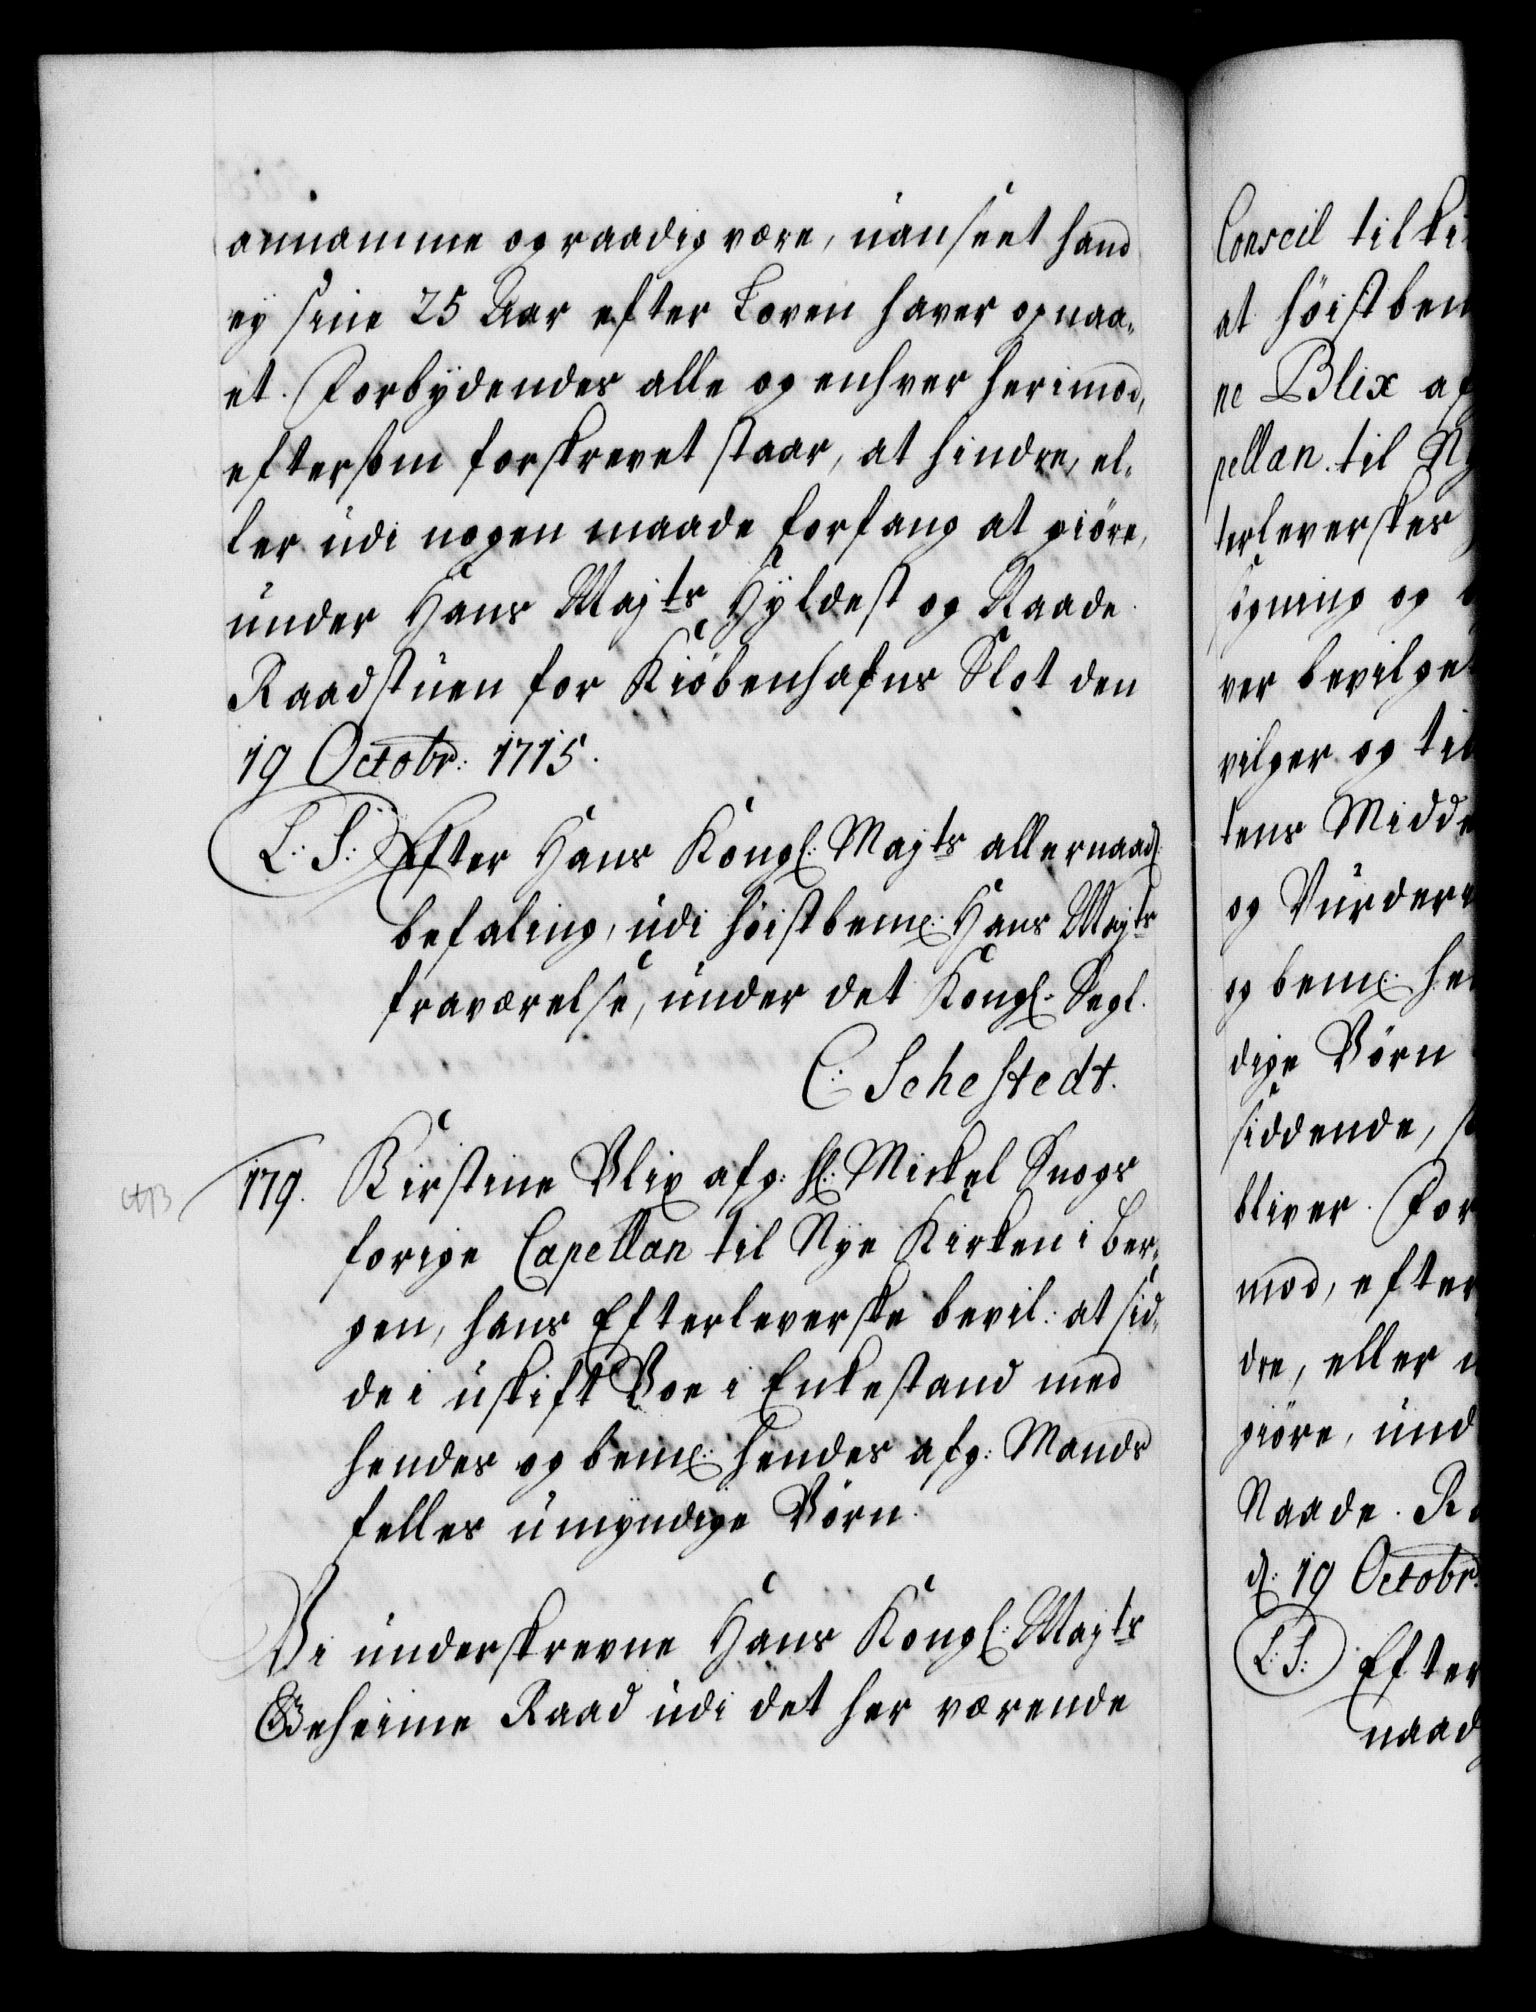 annamme og raadig være, uanseet hand
ey sine 25 Aar efter Loven haver opnaa-
et. Forbydendes alle og enhver herimod,
eftersom forskrevet staar, at hindre, el-
ler udi nogen maade forfang at giöre,
under Hans Majts Hyldest og Naade.
Raadstuen for Kiöbenhafns Slot den
19 Octobr: 1715.
L: S: Efter Hans Kongl: Majts allernaadl:
befaling, udi höistbemt: Hans Majts
fraværelse, under det Kongl: Segl.
C: Sehestedt.
179. Kirstine Blix afg: Hl: Mickel Snogs
forige Capellan til Nye Kirken i Ber-
gen, hans Efterleverske bevil: at sid-
de i uskift Boe i Enkestand med
hendes og bemt: hendes afg: Mands
felles umyndige Börn.
Vi underskrevne Hans Kongl: Majts
Geheime Raad udi det her værende
Conseil tilki
at höistben
ne Blix af
pellan til Ny
terleverskes
sögning og
ver bevilget
vilger og til
tens Midde
og Vurder
og bemt: he
dige Börn
siddende,
bliver. For
mod, efter
dre, eller u
giöre, und
Naade. Ra
d: 19 Octobr:
L: S: Efter
naad